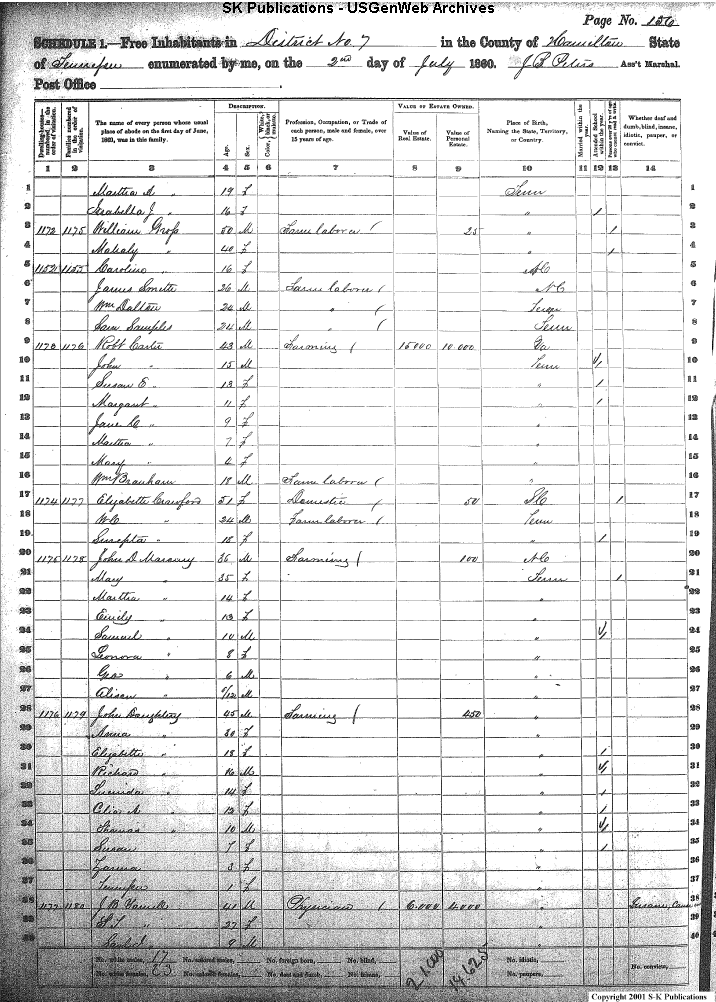 SK Publications - USGenWeb Archives
Page No. 156
SCHEDULE 1.—Free Inhabitants in District No. 7 in the County of Hamilton State
of Tennessee enumerated by me, on the 2nd day of July 1860. J B Peters Ass't Marshal.
Post Office
Dwelling-houses—numbered in the order of visitation. Families numbered in the order of visitation. The name of every person whose usual place of abode on the first day of June, 1860, was in this family. DESCRIPTION. Age. Sex. Color, White, black, or mulatto. Profession, Occupation, or Trade of each person, male and female, over 15 years of age. VALUE OF ESTATE OWNED. Value of Real Estate. Value of Personal Estate. Place of Birth, Naming the State, Territory, or Country. Married within the year. Attended School within the year. Whether deaf and dumb, blind, insane, idiotic, pauper, or convict.
1 2 3 4 5 6 7 8 9 10 11 12 13 14
1 Martha A " 19 f Tenn 1
2 Isabella J " 16 f " / 2
3 1172 1175 William Gross 50 M Farm laborer 25 " / 3
4 Mahaly " 40 f " / 4
5 Caroline " 16 f NC 5
6 James Smith 26 M Farm laborer NC 6
7 Wm Dalton 24 M " 7
8 Sam Samples 24 M " Tenn 8
9 1173 1176 Robt Carter 43 M Farming 15000 10,000 Va 9
10 John " 15 M Tenn / 10
11 Susan E " 13 f " / 11
12 Margaret " 11 f " / 12
13 Jane " 9 f " 13
14 Martha " 7 f " 14
15 Mary " 4 f " 15
16 Wm Branham 18 M Farm laborer " 16
17 1174 1177 Elizabeth Crawford 51 f Domestic 50 SC / 17
18 " 24 M Farm laborer Tenn 18
19 " 18 f " / 19
20 1175 1178 John D 36 M Farming 100 NC 20
21 Mary " 35 f Tenn / 21
22 Martha " 14 f " 22
23 Emily " 13 f " 23
24 Samuel " 10 M " / 24
25 Leonora " 8 f " 25
26 Geo " 6 M " 26
27 " M " 27
28 1176 1179 John Daughtery 45 M Farming 450 " 28
29 Anna " 30 f " 29
30 Elizabeth " 18 f " / 30
31 Richard " 16 M " / 31
32 " 14 f " / 32
33 " 12 f " / 33
34 Thomas " 10 M " / 34
35 Susan " 7 f " / 35
36 " 3 f " 36
37 Tennessee " 1 f " 37
38 1177 1180 J B 41 M Physician 6,000 4,000 " 38
39 " 27 f " 39
40 9 M " 40
No. white males, 17 No. colored males, No. foreign born, No. blind, 21,000 14,625 No. idiotic, No. convicts,
No. white females, 23 No. colored females, No. deaf and dumb, No. insane, No. paupers,
Copyright 2001 S-K Publications